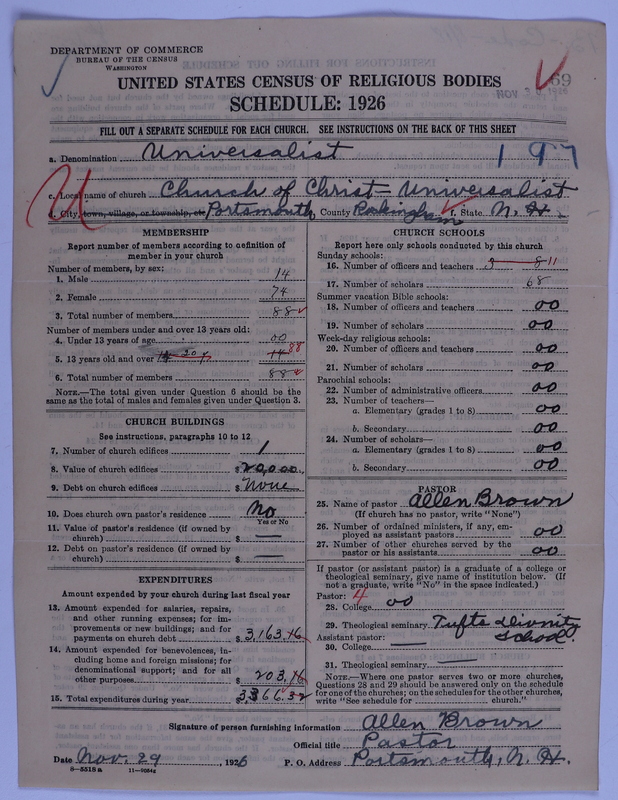 DEPARTMENT OF COMMERCE
BUREAU OF THE CENSUS
WASHINGTON
UNITED STATES CENSUS OF RELIGIOUS BODIES
69
NOV 1926
SCHEDULE: 1926
FILL OUT A SEPARATE SCHEDULE FOR EACH CHURCH. SEE INSTRUCTIONS ON THE BACK OF THIS SHEET
a. Denomination Universalist 197
c. Local name of church Church of Christ - Universalist
d. City, town, village, or township, etc Portsmouth, County Rockingham f. State N. H.
MEMBERSHIP
Report number of members according to definition of
member in your church
Number of members, by sex:
1. Male 14
2. Female 74
3. Total number of members 88
Number of members under and over 13 years old:
4. Under 13 years of age 00
5. 13 years old and over 88
6. Total number of members 88
NOTE.—The total given under Question 6 should be the
same as the total of males and females given under Question 3.
CHURCH BUILDINGS
See instructions, paragraphs 10 to 12
7. Number of church edifices 1
8. Value of church edifices $ 20,000.
9. Debt on church edifices $ None
10. Does church own pastor's residence? No
Yes or No
11. Value of pastor's residence (if owned by
church) $ —
12. Debt on pastor's residence (if owned by
church) $ —
EXPENDITURES
Amount expended by your church during last fiscal year
13. Amount expended for salaries, repairs,
and other running expenses; for im-
provements or new buildings; and for
payments on church debt $ 3,163.16
14. Amount expended for benevolences, in-
cluding home and foreign missions; for
denominational support; and for all
other purposes $ 203.16
15. Total expenditures during year $ 3,366.32
CHURCH SCHOOLS
Report here only schools conducted by this church
Sunday schools:
16. Number of officers and teachers 3 8 11
17. Number of scholars 68
Summer vacation Bible schools:
18. Number of officers and teachers 00
19. Number of scholars 00
Week-day religious schools:
20. Number of officers and teachers 00
21. Number of scholars 00
Parochial schools:
22. Number of administrative officers 00
23. Number of teachers—
a. Elementary (grades 1 to 8) 00
b. Secondary 00
24. Number of scholars—
a. Elementary (grades 1 to 8) 00
b. Secondary 00
PASTOR
25. Name of pastor Allen Brown
(If church has no pastor, write "None")
26. Number of ordained ministers, if any, em-
ployed as assistant pastors 00
27. Number of other churches served by the
pastor or his assistants 00
If pastor (or assistant pastor) is a graduate of a college or
theological seminary, give name of institution below. (If
not a graduate, write "No" in the space indicated.)
Pastor: 4
28. College 00
29. Theological seminary Tufts Divinity
School.
Assistant pastor:
30. College —
31. Theological seminary —
NOTE.—Where one pastor serves two or more churches,
Questions 28 and 29 should be answered only on the schedule
for one of the churches; on the schedules for the other churches,
write "See schedule for church."
Signature of person furnishing information Allen Brown
Official title Pastor
Date Nov. 29, 1926 P. O. Address Portsmouth, N. H.
8—5518a 11—9054c